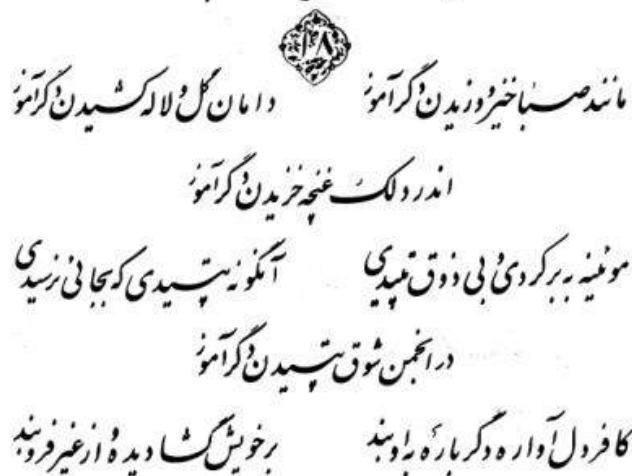 مانند صبا خیز و وزیدن دگر آموز    دامان گل و لاله کشیدن دگر آموز
اندر دلک غنچه خزیدن دگر آموز
موئینه به بر کردی و بی ذوق تپیدی    آنگونه تپیدی که بجائی نرسیدی
در انجمن شوق تپیدن دگر آموز
کافر دل آواره دگر باره به او بند    بر خویش گشا دیده و از غیر فروبند